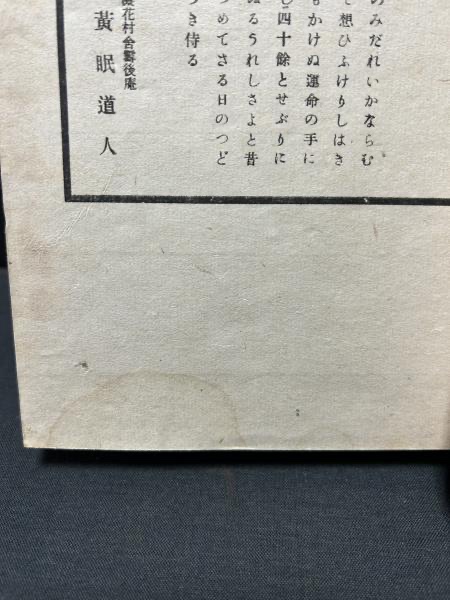 のみだれいかならむ
て想ひふけりしはき
もかけぬ運命の手に
し四十餘とせぶりに
ぬるうれしさよと昔
つめてさる日のつど
つき侍る
花村舍後庵
黃眠道人